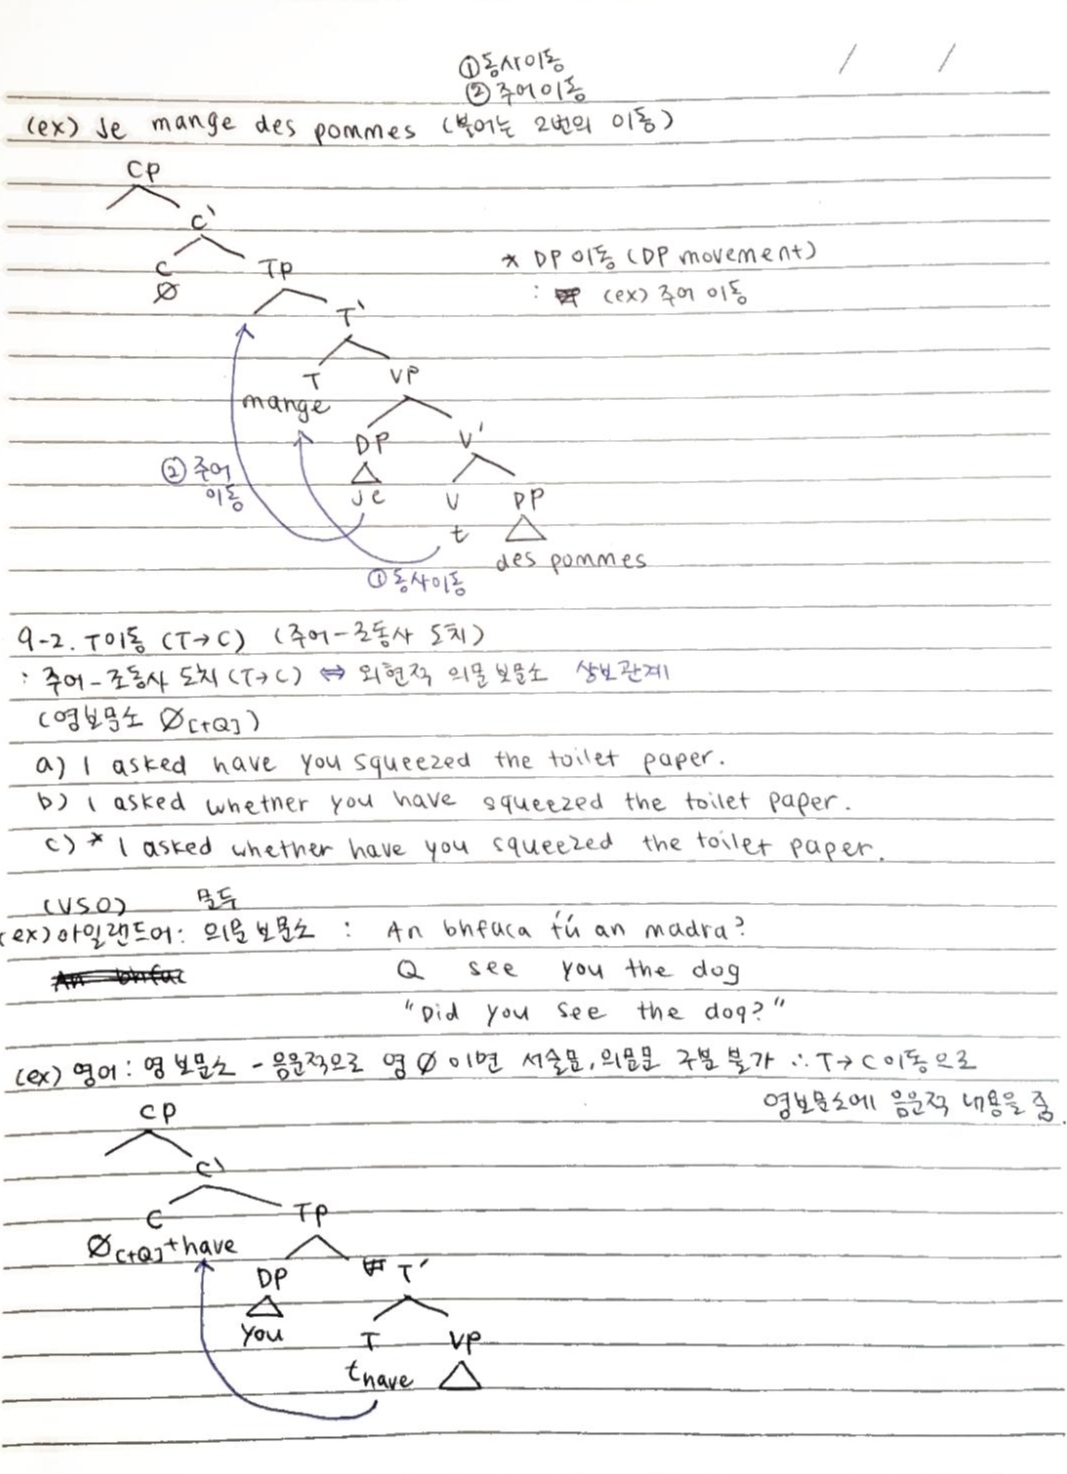 ①동사이동
②주어이동
(ex) Je mange des pommes (불어는 2번의 이동)
CP
C'
C TP
∅
* DP 이동 (DP movement)
: (ex) 주어 이동
T'
T VP
mange
DP V'
② 주어
이동
Je V DP
t
des pommes
①동사이동
9-2. T이동 (T→C) (주어-조동사 도치)
: 주어-조동사 도치 (T→C) ⇔ 외현적 의문 보문소 상보관계
(영보문소 ∅[+Q])
a) I asked have you squeezed the toilet paper.
b) I asked whether you have squeezed the toilet paper.
c) * I asked whether have you squeezed the toilet paper.
(VSO) 모두
(ex) 아일랜드어: 의문 보문소 : An bhfaca tú an madra?
Q see you the dog
"Did you see the dog?"
(ex) 영어: 영 보문소 - 음운적으로 영 ∅ 이면 서술문, 의문문 구분 불가 ∴ T→C 이동으로
영보문소에 음운적 내용을 줌.
CP
C'
C TP
∅[+Q]+have
DP T'
you T VP
t have